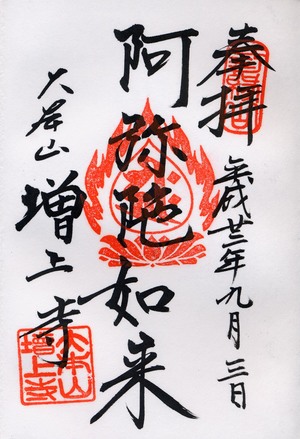 奉拝
平成廿二年九月三日
阿弥陀如来
大本山
増上寺
大本山
増上寺